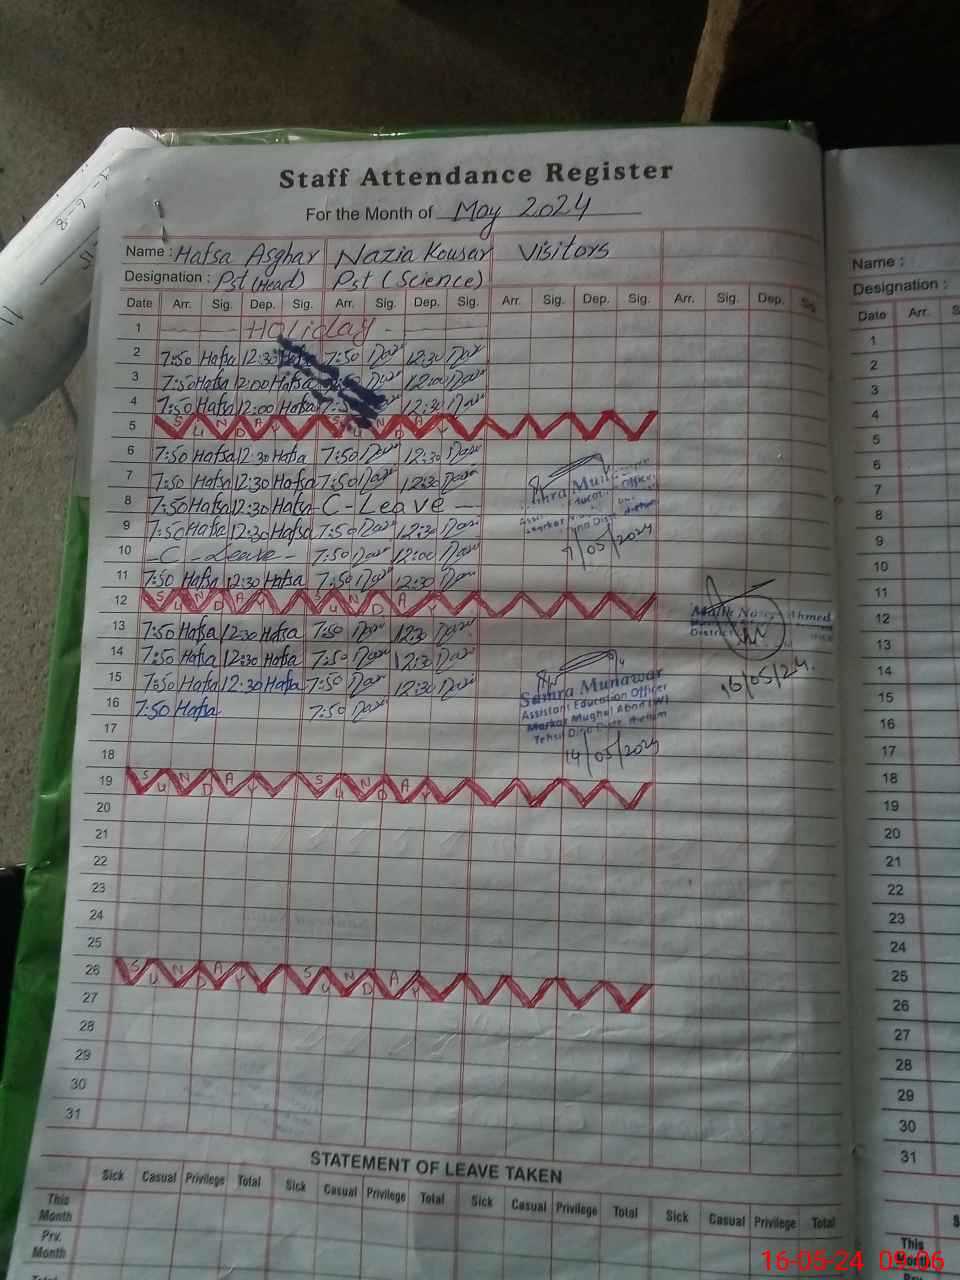 Staff Attendance Register
For the Month of May 2024
Name : Hafsa Asghar Nazia Kousar Visitors
Designation : Pst (Head) Pst (Science)
Date Arr. Sig. Dep. Sig. Arr. Sig. Dep. Sig. Arr. Sig. Dep. Sig. Arr. Sig. Dep. Sig.
1 Holiday
2 7:50 Hafsa 12:30 7:50 12:30
3 7:50 Hafsa 12:00 Hafsa 12:00
4 7:50 Hafsa 12:00 Hafsa 12:30
5 SUNDAY SUNDAY
6 7:50 Hafsa 12:30 Hafsa 7:50 12:30
7 7:50 Hafsa 12:30 Hafsa 7:50 12:30
8 7:50 Hafsa 12:30 Hafsa C-Leave
9 7:50 Hafsa 12:30 Hafsa 7:50 12:30
10 C-Leave 7:50 12:00
11 7:50 Hafsa 12:30 Hafsa 7:50 12:30
12 SUNDAY SUNDAY
13 7:50 Hafsa 12:30 Hafsa 7:50 12:30
14 7:50 Hafsa 12:30 Hafsa 7:50 12:30
15 7:50 Hafsa 12:30 Hafsa 7:50 12:30
16 7:50 Hafsa 7:50
17
18
19 SUNDAY SUNDAY
20
21
22
23
24
25
26 SUNDAY SUNDAY
27
28
29
30
31
7/05/2024
Ahmed
District
16/05/24.
Samra Munawar
Assistant Education Officer
Markaz Mughal Abad (W)
14/05/2024
STATEMENT OF LEAVE TAKEN
Sick Casual Privilege Total Sick Casual Privilege Total Sick Casual Privilege Total Sick Casual Privilege Total
This Month
Prv. Month
Name :
Designation :
Date Arr.
1
2
3
4
5
6
7
8
9
10
11
12
13
14
15
16
17
18
19
20
21
22
23
24
25
26
27
28
29
30
31
This Month
16-05-24 09:06